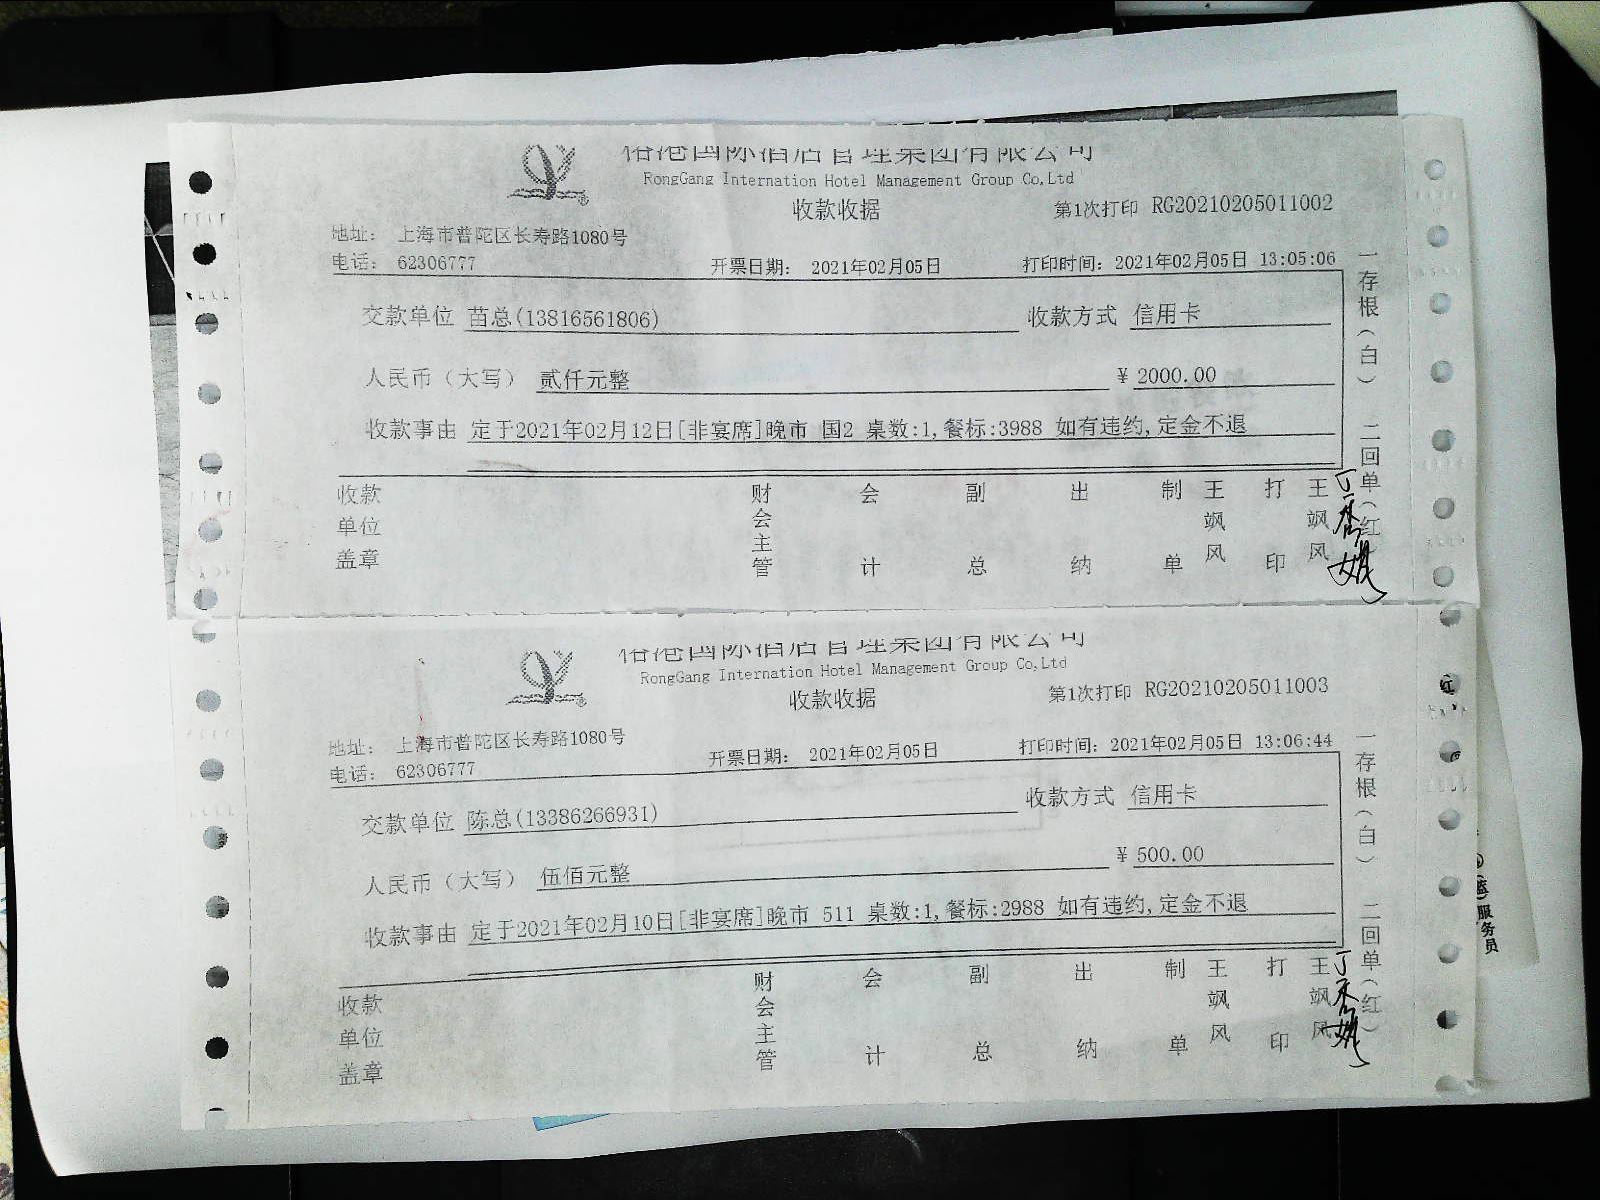 港国际酒店管理集团有限公司
RongGang Internation Hotel Management Group Co,Ltd
收款收据
第1次打印 RG20210205011002
地址： 上海市普陀区长寿路1080号
电话： 62306777
开票日期： 2021年02月05日
打印时间：2021年02月05日 13:05:06
交款单位 苗总(13816561806)
收款方式 信用卡
人民币（大写） 贰仟元整
¥ 2000.00
收款事由 定于2021年02月12日[非宴席]晚市 国2 桌数:1,餐标:3988 如有违约,定金不退
一存根（白） 二回单（红）
收款单位盖章
财会主管
会计
副总
出纳
制单
王飒风
打印
王飒风
港国际酒店管理集团有限公司
RongGang Internation Hotel Management Group Co,Ltd
收款收据
第1次打印 RG20210205011003
地址： 上海市普陀区长寿路1080号
电话： 62306777
开票日期： 2021年02月05日
打印时间：2021年02月05日 13:06:44
交款单位 陈总(13386266931)
收款方式 信用卡
人民币（大写） 伍佰元整
¥ 500.00
收款事由 定于2021年02月10日[非宴席]晚市 511 桌数:1,餐标:2988 如有违约,定金不退
一存根（白） 二回单（红）
收款单位盖章
财会主管
会计
副总
出纳
制单
王飒风
打印
王飒风
服务员